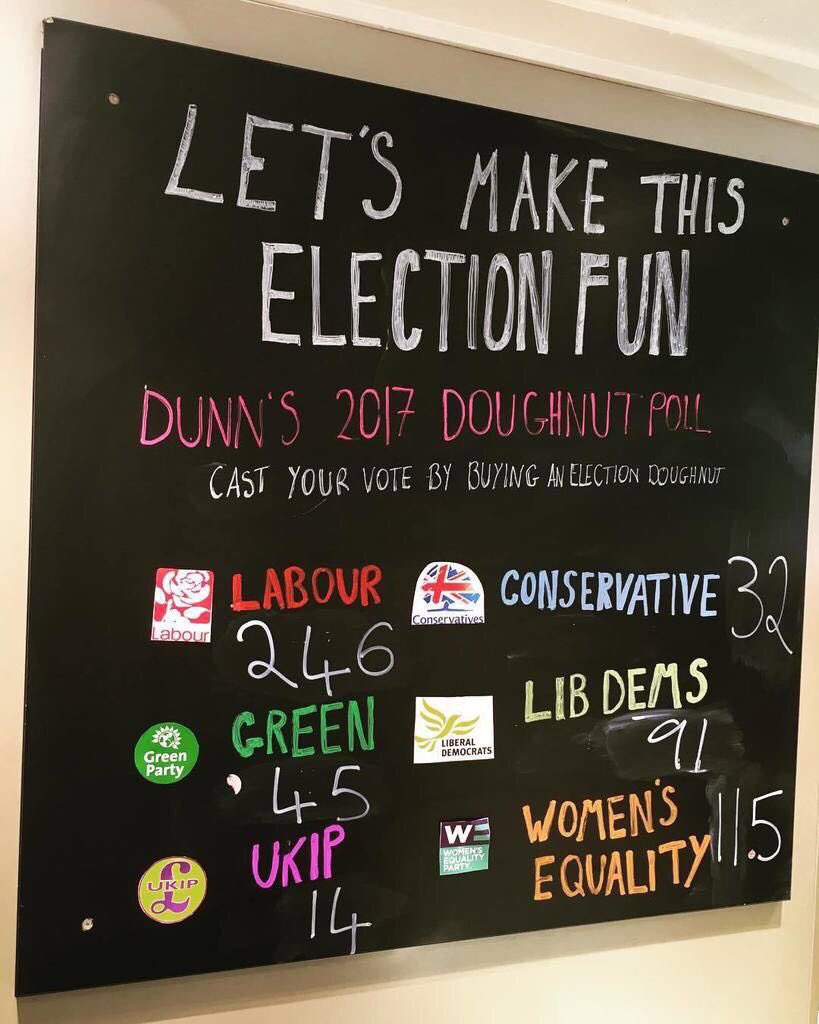 LET'S MAKE THIS
ELECTION FUN
DUNN'S 2017 DOUGHNUT POLL
CAST YOUR VOTE BY BUYING AN ELECTION DOUGHNUT
Labour
LABOUR
246
Conservatives
CONSERVATIVE 32
Green
Party
GREEN
45
LIBERAL
DEMOCRATS
LIB DEMS
91
UKIP
UKIP
14
WE
WOMEN'S
EQUALITY
PARTY.
WOMEN'S
EQUALITY 11.5